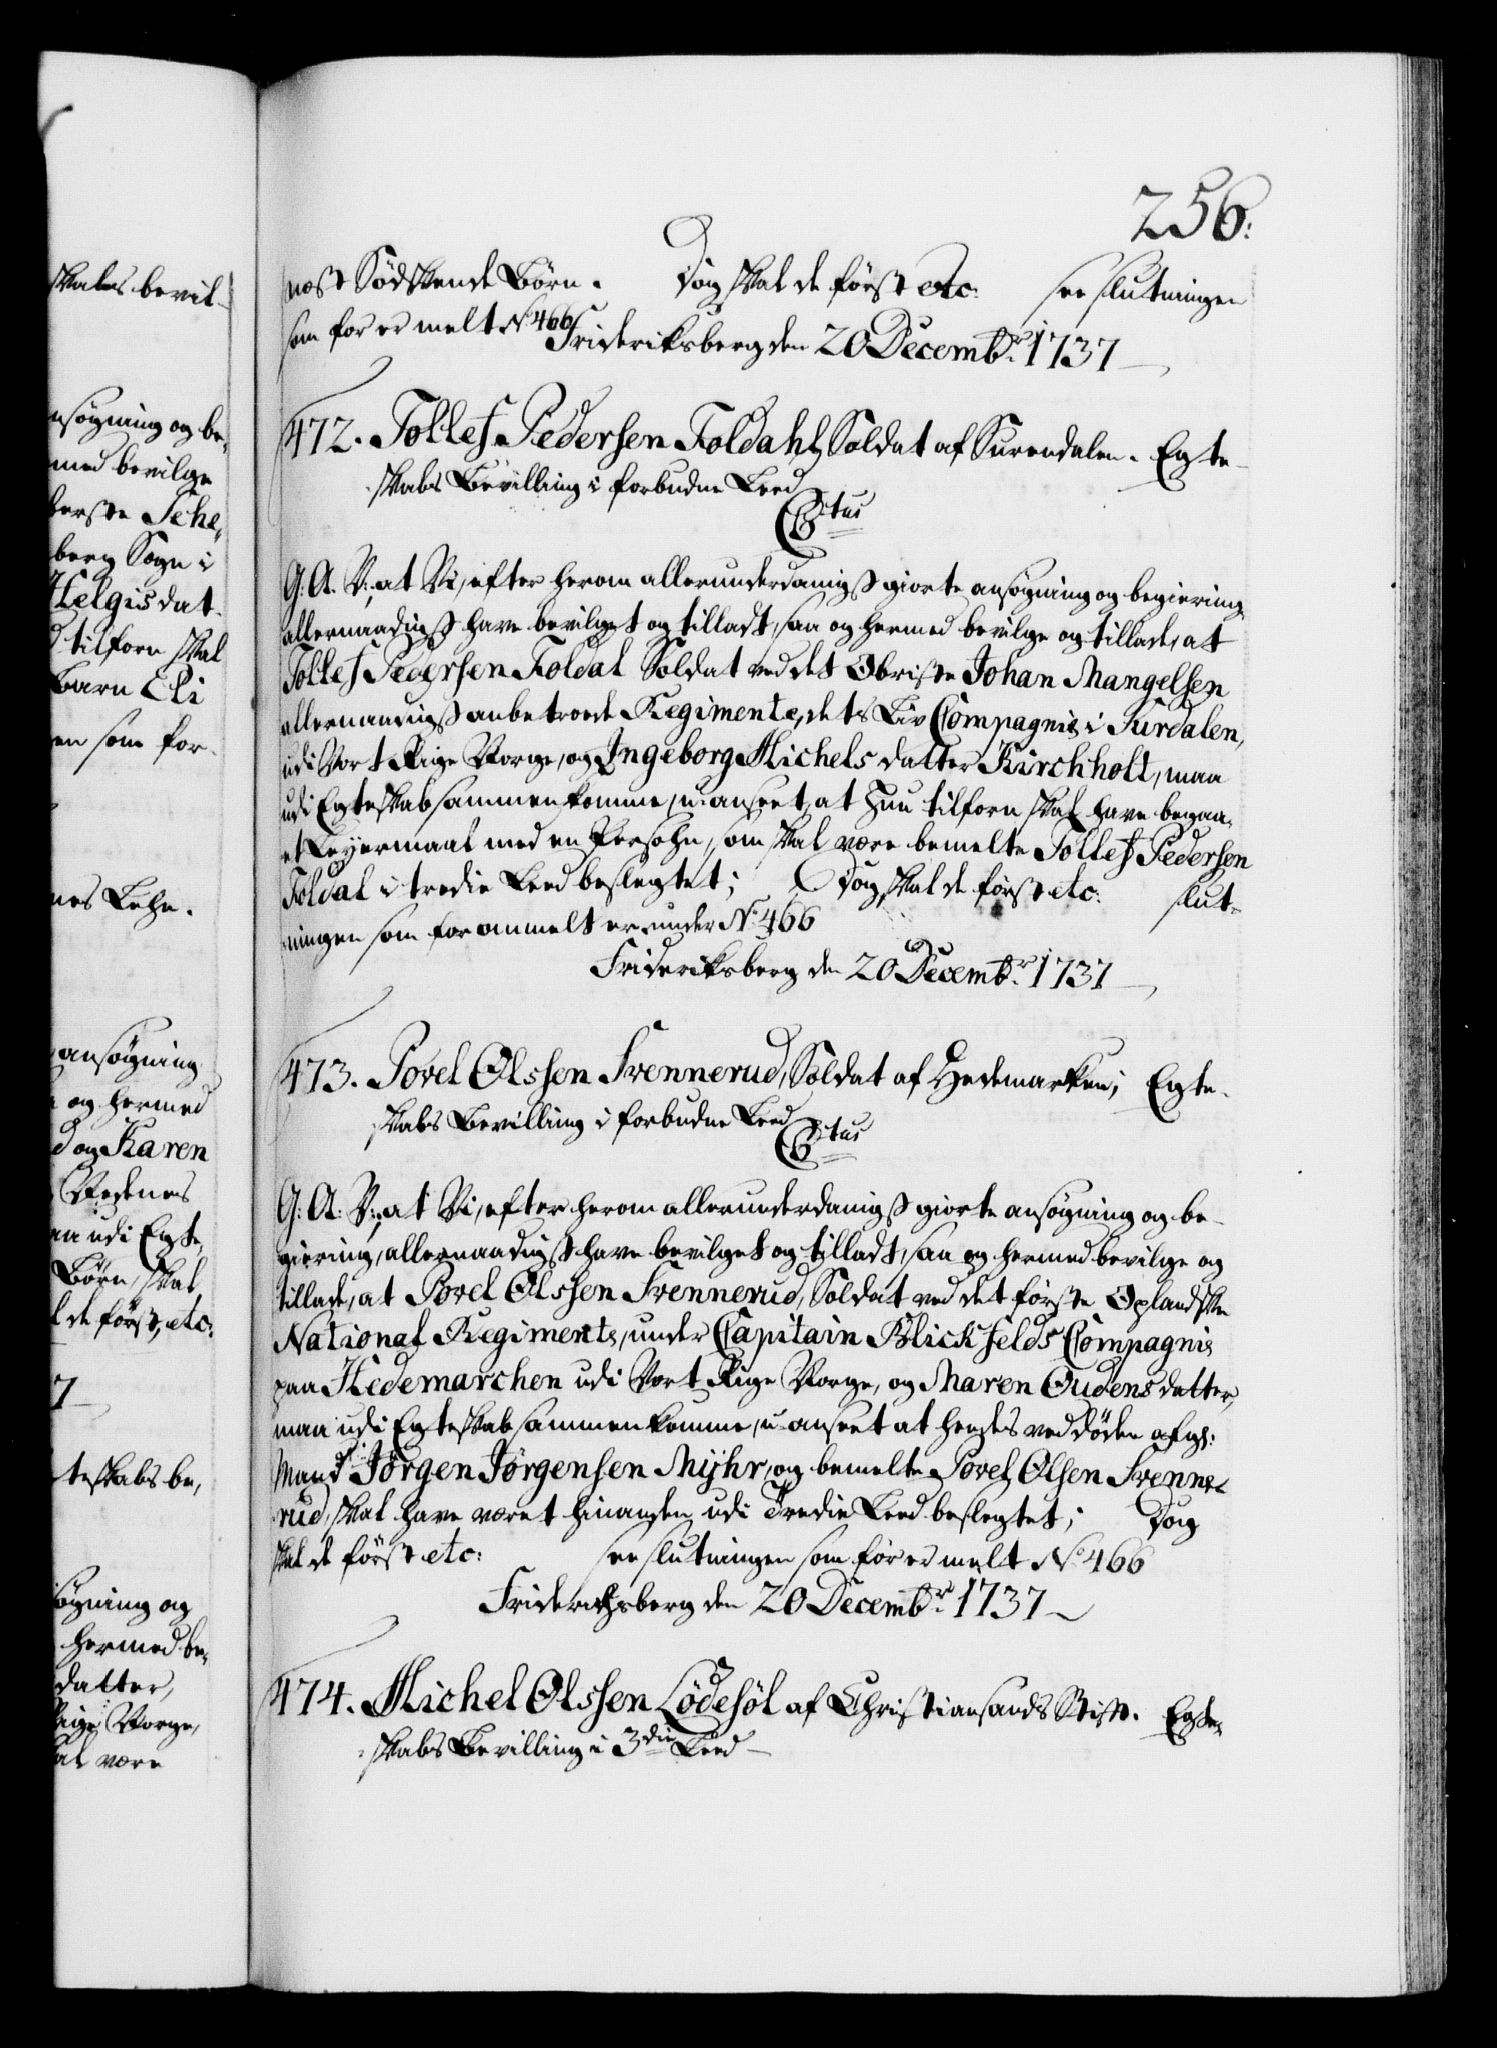 256.
næst Södskende Börn. Dog skal de först etc: see slutningen
som for er melt No 466
Frideriksberg den 20 Decembr. 1737
472. Tollef Pedersen Foldahl, Soldat af Surendalen. Egte-
skabs Bevilling i forbudne Leed
C6tus
G: A: V:, at Vi, efter herom allerunderdanigst giorte ansøgning og begiering
allernaadigst have bevilget og tilladt, saa og hermed bevilge og tillade, at
Tollef Pedersen Foldal Soldat ved det Obriste Johan Mangelsen
allernaadigst anbetroede Regimente, dets Liv Compagnie i Surdalen,
udi Vort Rige Norge, og Ingeborg Michels datter Kirchholt, maa
udi Egteskab sammenkomme, u-anseet, at hun tilforn skal have begaa-
et Leyermaal med en Persohn, som skal være bemelte Tollef Pedersen
Foldal i tredie Leed beslegtet; Dog skal de först etc: slut-
ningen som for anmelt er under No 466
Frideriksberg den 20 Decembr. 1737
473. Povel Olssen Svennerud, Soldat af Hedemarken; Egte-
skabs Bevilling i forbudne Leed
C6tus
G: A: V:, at Vi, efter herom allerunderdanigst giorte ansøgning og be-
giering, allernaadigst have bevilget og tilladt, saa og hermed bevilge og
tillade, at Povel Olssen Svennerud, Soldat ved det förste Oplandske
National Regimente, under Capitain Blickfelds Compagnie
paa Hedemarchen udi Vort Rige Norge, og Maren Oudens datter,
maa udi Egteskab sammenkomme, u-anseet at hendes ved döden afgl:
Mand Jörgen Jörgensen Mijhr, og bemelte Povel Olsen Svenne-
rud, skal have været hinanden udi Tredie Leed beslegtet; Dog
skal de först etc: see slutningen som för er melt No 466
Friderichsberg den 20 Decembr. 1737
474. Michel Olssen Lödesöl af Christiansands Stift. Egte-
skabs Bevilling i 3die Leed
skabs bevil-
nsögning og be-
med bevilge
berste Sche-
berg Sogn i
Helgis dat-
d tilforn skal
Barn Eli
en som for-
nes Lehn.
ansögning
og hermed
d og Karen
Nedenes
aa udi Egte-
Börn, skal
l de först, etc:
7
teskabs be-
sögning og
hermed be-
datter,
Rige Norge,
al være